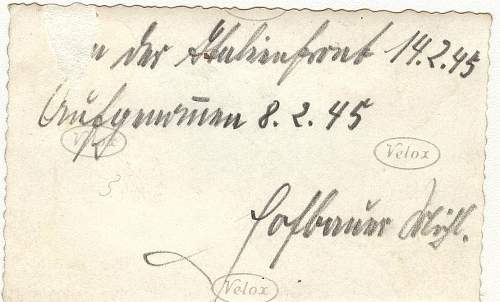 n der Italienfront 14.2.45
Aufgenom̅en 8.2.45
Velox
Velox
Hofbauer Michl.
Velox